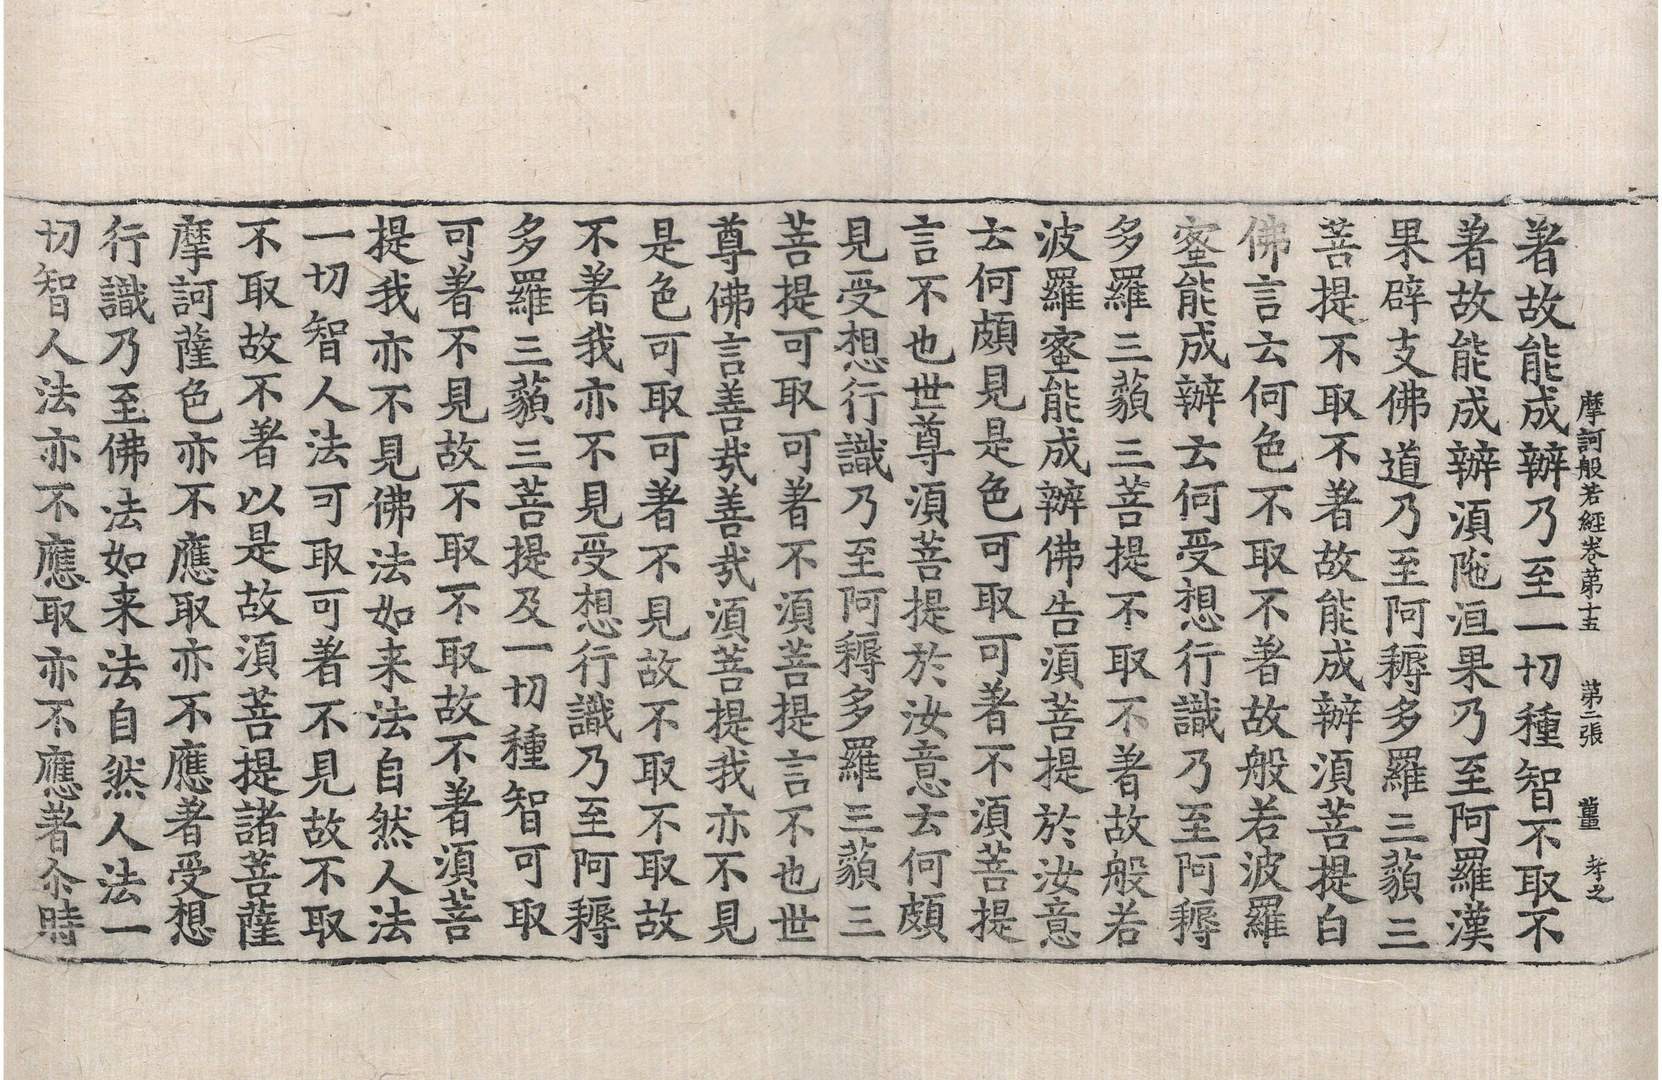 摩訶般若經卷第十五 第二張 薑 孝之
著故能成辦乃至一切種智不取不
著故能成辦湏陁洹果乃至阿羅漢
果辟支佛道乃至阿耨多羅三藐三
菩提不取不著故能成辦湏菩提白
佛言云何色不取不著故般若波羅
蜜能成辦云何受想行識乃至阿耨
多羅三藐三菩提不取不著故般若
波羅蜜能成辦佛告湏菩提於汝意
云何頗見是色可取可著不湏菩提
言不也世尊湏菩提於汝意云何頗
見受想行識乃至阿耨多羅三藐三
菩提可取可著不湏菩提言不也世
尊佛言善哉善哉湏菩提我亦不見
是色可取可著不見故不取不取故
不著我亦不見受想行識乃至阿耨
多羅三藐三菩提及一切種智可取
可著不見故不取不取故不著湏菩
提我亦不見佛法如来法自然人法
一切智人法可取可著不見故不取
不取故不著以是故湏菩提諸菩薩
摩訶薩色亦不應取亦不應著受想
行識乃至佛法如来法自然人法一
切智人法亦不應取亦不應著尒時